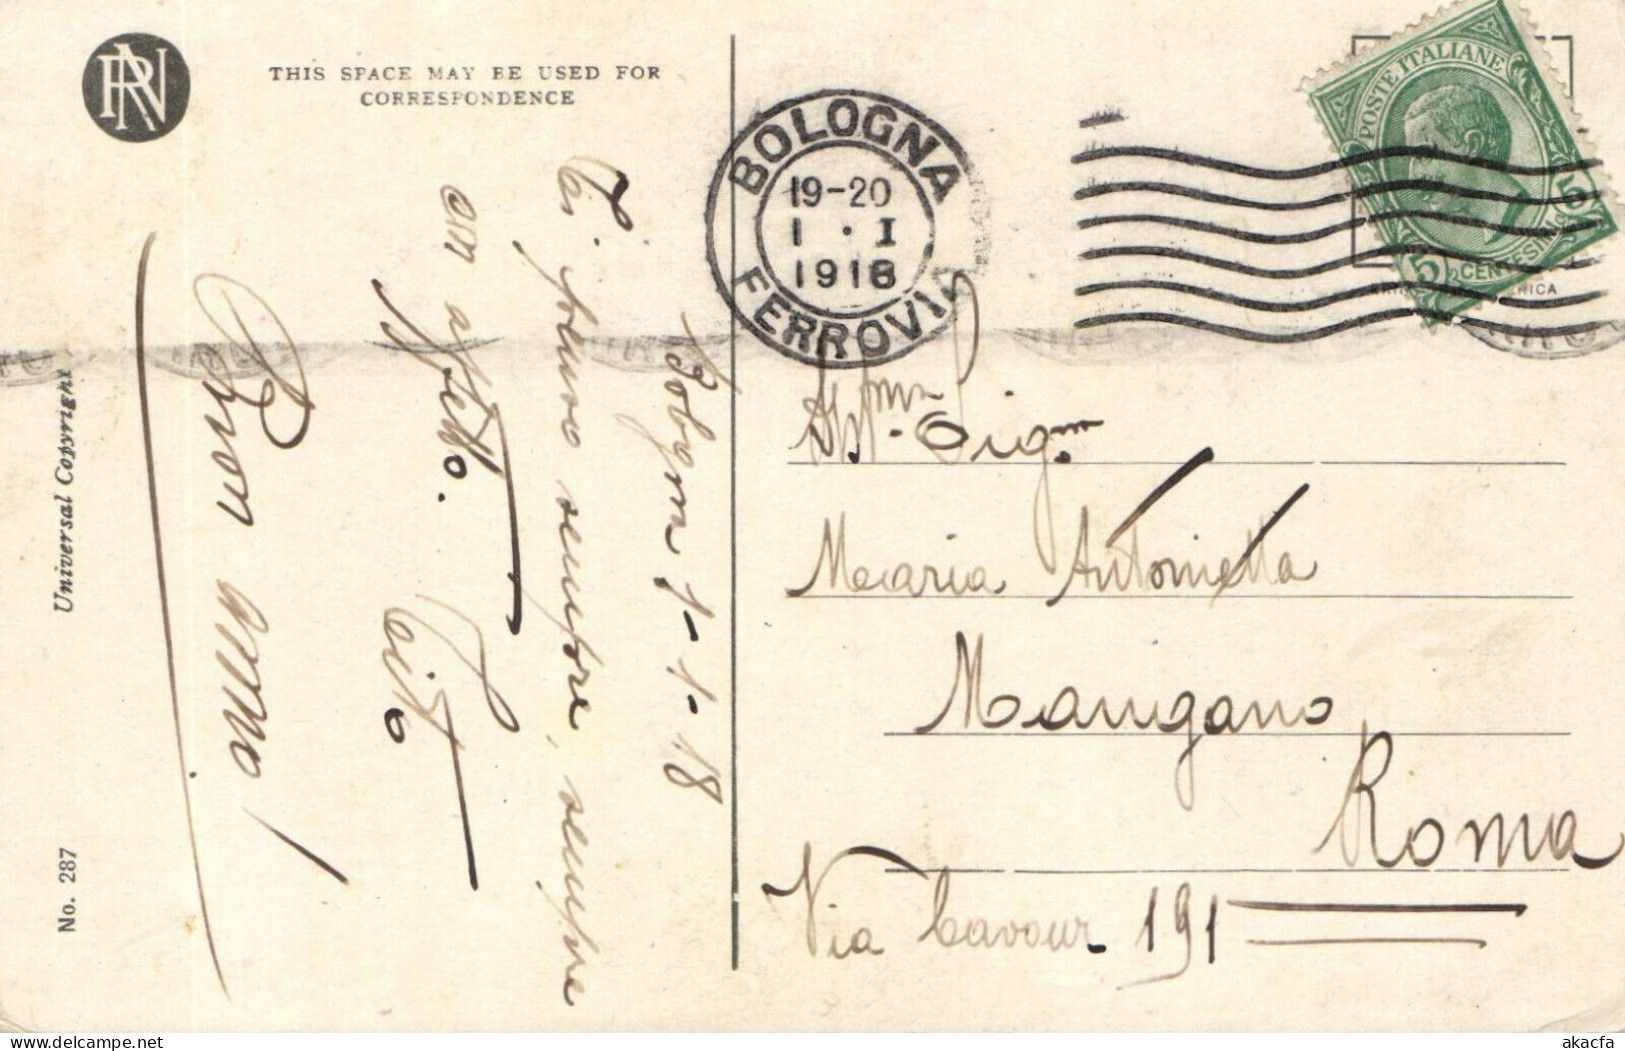 RN
THIS SPACE MAY BE USED FOR
CORRESPONDENCE
Bologna 1-1-18
Ti penso sempre, sempre
con affetto.
Tito
Buon anno!
Universal Copyright
No. 287
BOLOGNA
19-20
1 · I
1918
FERROVIA
POSTE ITALIANE
5 CENTESIMI 5
Ill.ma Sig.na
Maria Antonietta
Mangano
Roma
Via Cavour 191
delcampe.net
akacfa